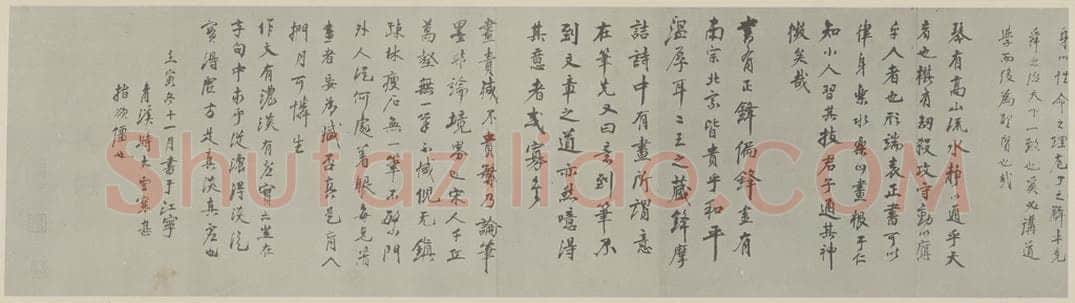 身心性命之理克
舜之治天下一
學而後為聖賢也哉
琴有高山流水物心通乎天
者也棋有劫殺攻守動心
乎人者也形端表正書可以
律身樂水樂山畫根于仁
知小人習其技君子通其神
微矣哉
書有正鋒偏鋒畫有
南宗北宗皆貴乎和平
溫厚耳二王之藏鋒摩
詰詩中有畫所謂意
在筆先又曰意到筆不
到文章之道亦然噫得
其意者或寡矣
畫貴減不貴繁乃論筆
墨非論境界也宋人千丘
萬壑無一筆不減倪元鎮
疎林瘦石無一筆不繁門
外人從何處著眼每見
畫者妄為減否真是盲人
捫月可憐生
作文有濃淡有虛實亦在
字句中求乎從濃得淡從
實得虛方是真淡真虛也
壬寅冬十一月書于江寧
青溪時大雪寒甚
指欲僵也
Shufaziliao.COM